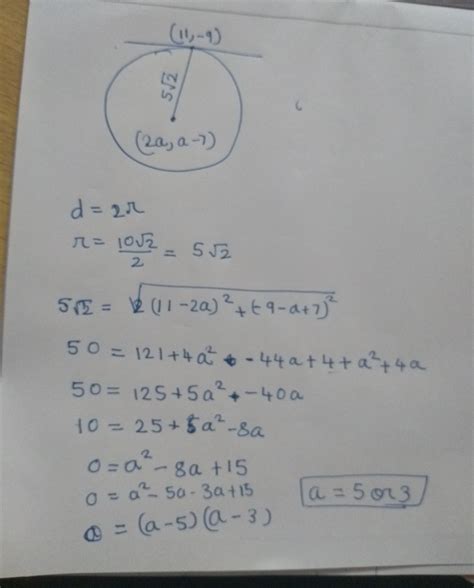 (11,-9)
5√2
(2a, a-7)
d = 2r
r = 10√2/2 = 5√2
5√2 = √(11-2a)²+(-9-a+7)²
50 = 121+4a² - 44a+4+a²+4a
50 = 125+5a² - 40a
10 = 25+5a²-8a
0 = a² - 8a + 15
0 = a² - 5a - 3a+15
0 = (a-5)(a-3)
a = 5 or 3